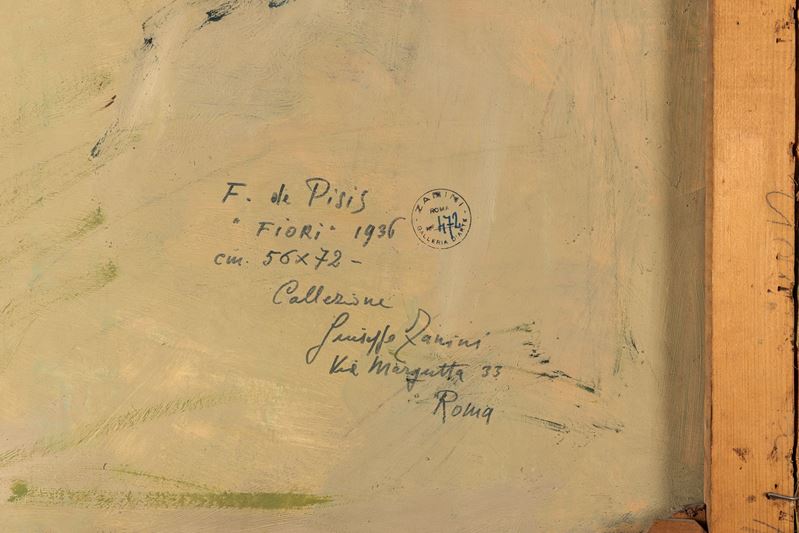 F. de Pisis
"FIORI" 1936
cm. 56x72-
Collezione
Giuseppe Zanini
Via Margutta 33
Roma
ZANINI
ROMA
N° 472
GALLERIA D'ARTE